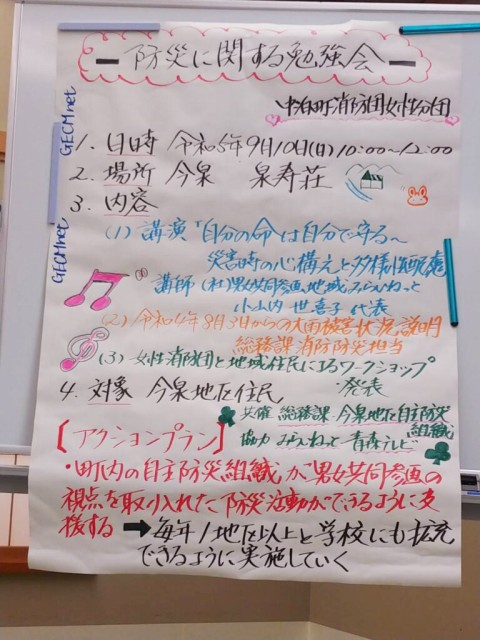 ー防災に関する勉強会ー
中泊町消防団女性分団
1. 日時 令和5年9月10日(日)10:00〜12:00
2. 場所 今泉 泉寿荘
3. 内容
(1) 講演「自分の命」は自分で守る〜
災害時の心構えと多様性配慮
講師 (社)男女共同参画地域みらいねっと
小山内 世喜子 代表
(2) 令和4年8月3日からの大雨被害状況説明
総務課消防防災担当
(3) 女性消防団と地域住民によるワークショップ
発表
4. 対象 今泉地区住民
共催 総務課 今泉地区自主防災
組織
【アクションプラン】
協力 みらいねっと 青森テレビ
・町内の自主防災組織が"男女共同参画の
視点を取り入れた"防災活動ができるように支
援する ➡毎年1地区以上と学校にも拡充
できるように実施していく
GECMnet
GECMnet